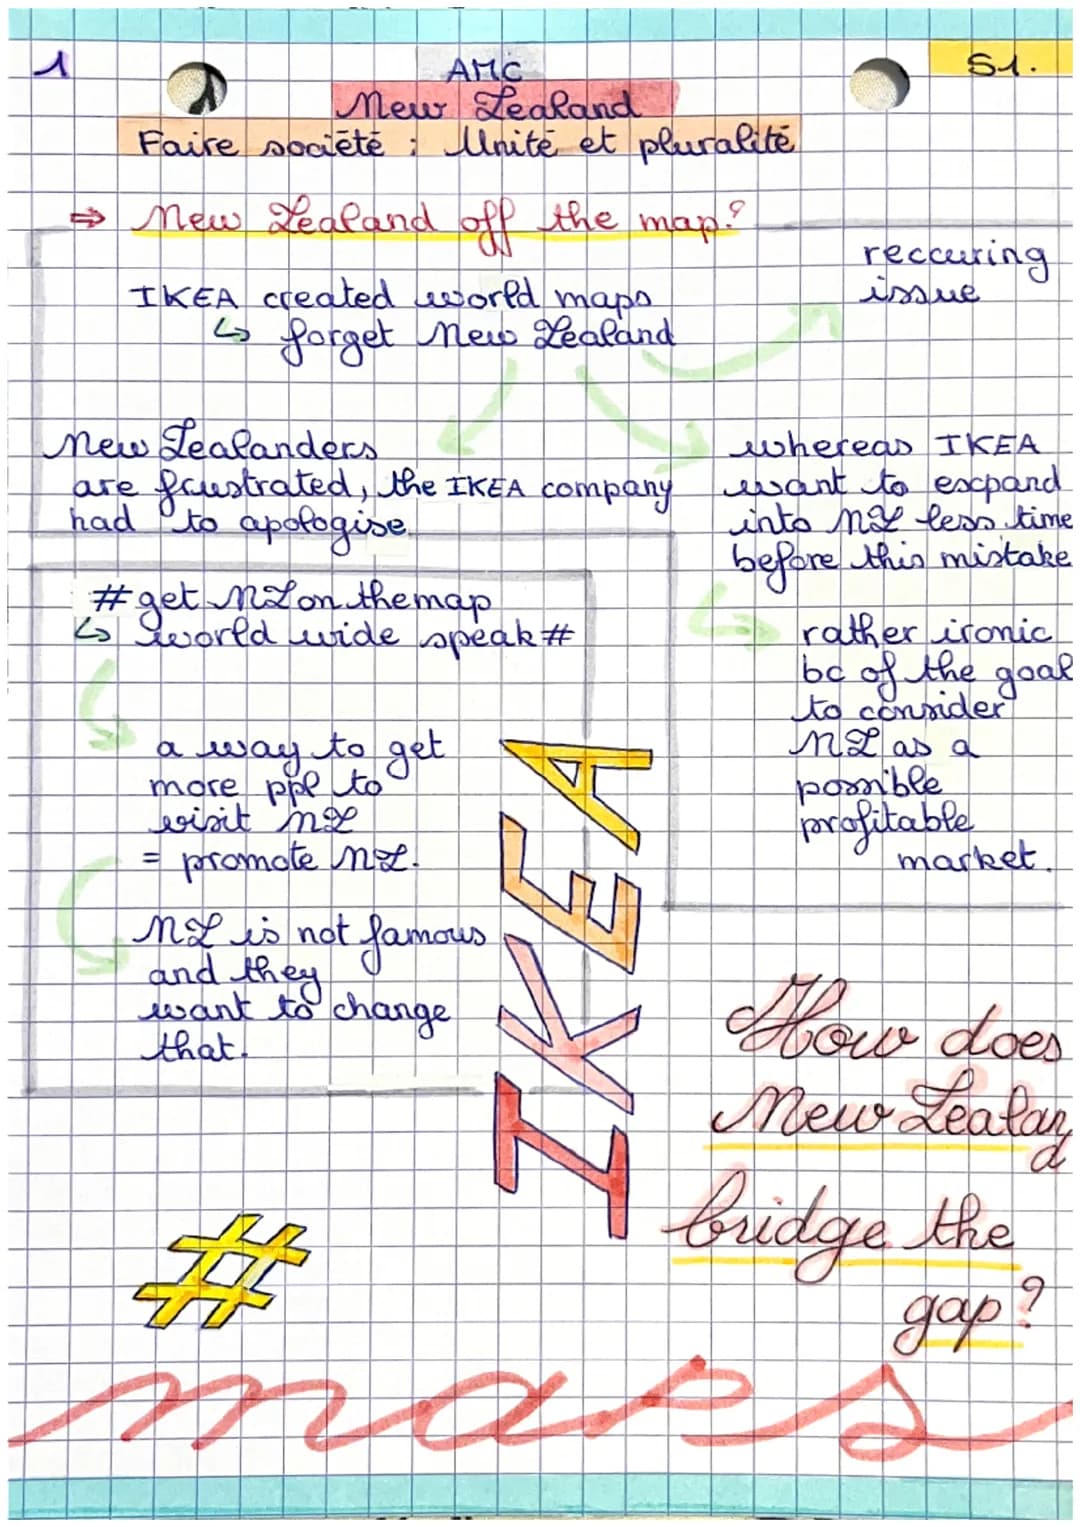 1
AMC
S1.
New Zealand
Faire société : Unité et pluralité
⇒ New Zealand off the map?
reccuring
issue
IKEA created world maps
↳ forget New Zealand
New Zealanders
are frustrated, the IKEA company
had to apologise.
whereas IKEA
want to expand
into NZ less time
before this mistake
#getNZonthemap
↳ world wide speak #
rather ironic
bc of the goal
to consider
NZ as a
possible
profitable
market.
a way to get
more ppl to
visit NZ
= promote NZ.
NZ is not famous
and they
want to change
that.
IKEA
How does
New Zealand
bridge the
gap?
#
maps